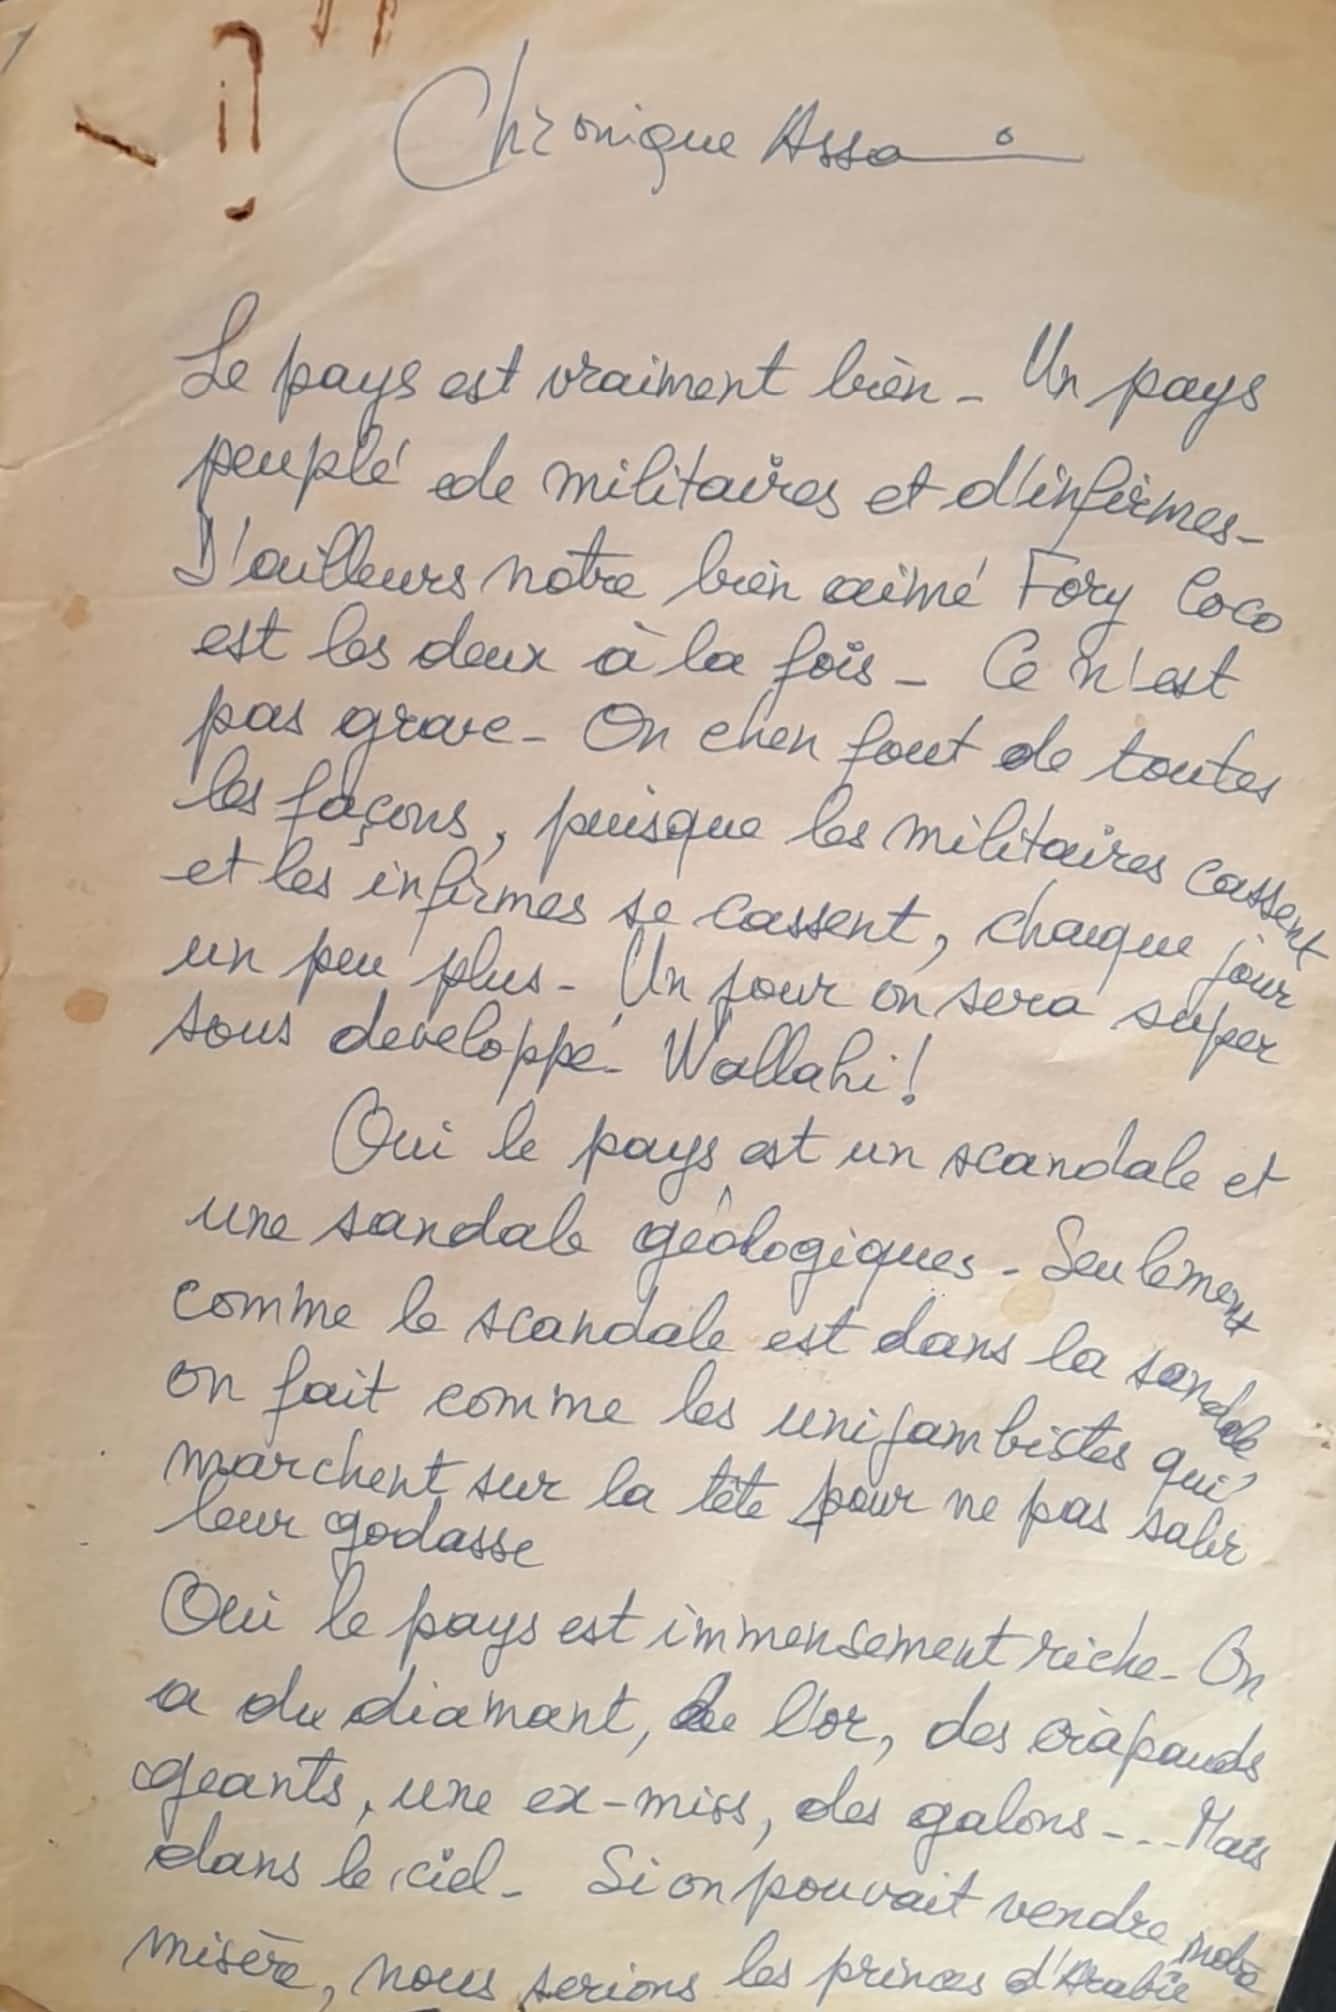 Chronique Assa
Le pays est vraiment bien - Un pays
peuplé de militaires et d'infirmes -
D'ailleurs notre bien aimé Fory Coco
est les deux à la fois - Ce n'est
pas grave - On chen fout de toutes
les façons, puisque les militaires cassent
et les infirmes se cassent, chaque jour
un peu plus - Un jour on sera super
sous developpé - Wallahi!
Oui le pays est un scandale et
une sandale géologiques - Seulement
comme le scandale est dans la sandale
on fait comme les unijambistes qui
marchent sur la tête pour ne pas salir
leur godasse
Oui le pays est immensement riche - On
a du diamant, de l'or, des crapauds
geants, une ex-miss, des galons --- Mars
dans le ciel - Si on pouvait vendre notre
misère, nous serions les princes d'Arabie